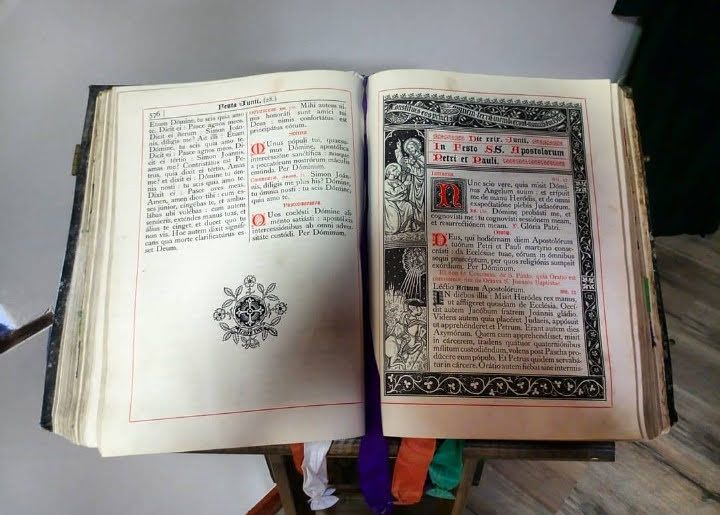 576
Festa Junii. (28.)
Etiam Dómine, tu scis quia amo
te. Dicit ei : Pasce agnos meos.
Dicit ei íterum : Simon Joán-
nis, díligis me? Ait illi : Etiam
Dómine, tu scis quia amo te.
Dicit ei : Pasce agnos meos. Di-
cit ei tértio : Simon Joánnis,
amas me? Contristátus est Pe-
trus, quia dixit ei tértio : Amas
me? et dixit ei : Dómine tu óm-
nia nosti : tu scis quia amo te.
Dixit ei : Pasce oves meas.
Amen, amen dico tibi : cum es-
ses júnior, cingébas te, et ambu-
lábas ubi volébas : cum autem
senúeris, exténdes manus tuas, et
álius te cinget, et ducet quo tu
non vis. Hoc autem dixit signífi-
cans qua morte clarificatúrus es-
set Deum.
Mihi autem ni-
mis honoráti sunt amíci tui
Deus : nimis confortátus est
principátus eórum.
Secreta
Múnus pópuli tui, quǽsu-
mus Dómine, apostólica
intercessióne sanctífica : nosque
a peccatórum nostrórum máculis
emúnda. Per Dóminum.
Simon Joán-
nis, díligis me plus his? Dómine,
tu ómnia nosti : tu scis Dómine,
quia amo te.
Postcommunio
Quos cœlésti Dómine ali-
ménto satiásti : apostólicis
intercessiónibus ab omni adver-
sitáte custódi. Per Dóminum.
Constitues eos principes super omnem terram
Die xxix. Junii.
In Festo SS. Apostolorum
Petri et Pauli.
Nunc scio vere, quia misit Dómi-
nus Angelum suum : et erípuit
me de manu Heródis, et de omni
exspectatióne plebis Judæórum.
Ps. Dómine probásti me, et
cognovísti me : tu cognovísti sessiónem meam,
et resurrectiónem meam. ℣. Glória Patri.
Oratio
Deus, qui hodiérnam diem Apostolórum
tuórum Petri et Pauli martyrio conse-
crásti : da Ecclésiæ tuæ, eórum in ómnibus
sequi præcéptum, per quos religiónis sumpsit
exórdium. Per Dóminum.
Et non fit Commem. de S. Paulo, quia Oratio est
Léctio Actuum Apostolórum.
In diébus illis : Misit Heródes rex manus,
ut afflígeret quosdam de Ecclésia. Occí-
dit autem Jacóbum fratrem Joánnis gládio.
Videns autem quia placéret Judæis, appósuit
ut apprehénderet et Petrum. Erant autem dies
Azymórum. Quem cum apprehendísset, misit
in cárcerem, tradens quátuor quaterniónibus
mílitum custodiéndum, volens post Pascha pro-
dúcere eum pópulo. Et Petrus quidem servabá-
tur in cárcere. Orátio autem fiébat sine intermis-